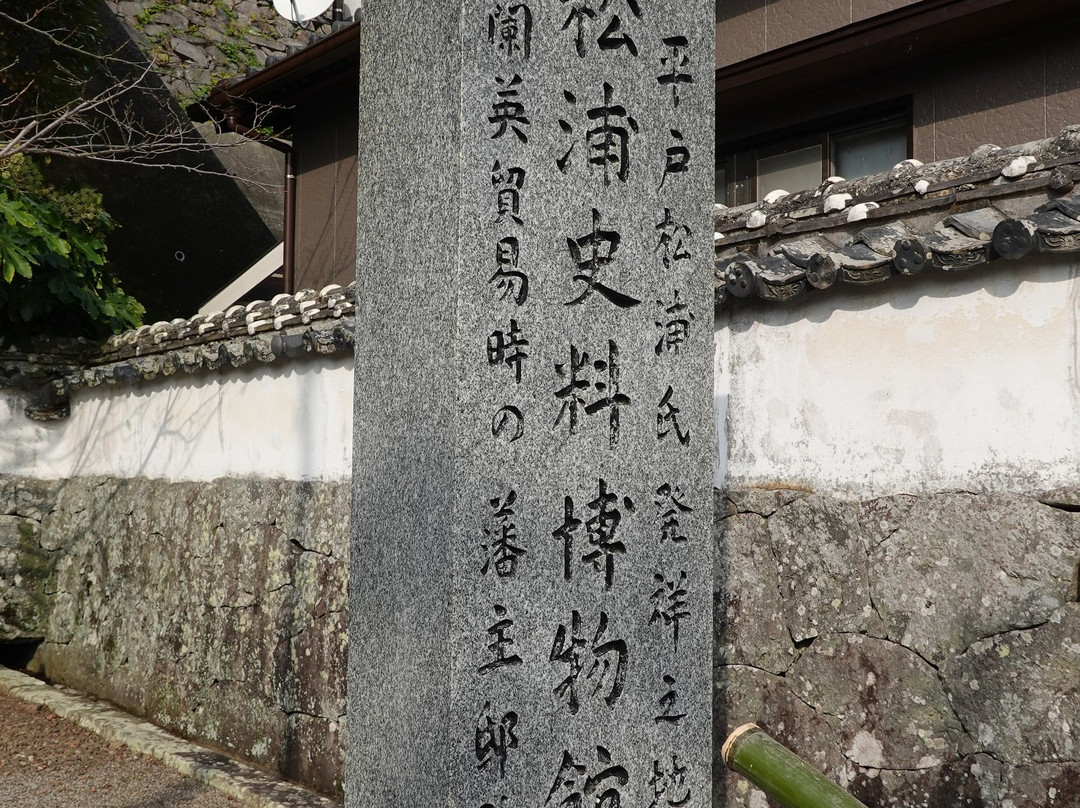 平戸松浦氏発祥之地
松浦史料博物館
蘭英貿易時の藩主邸